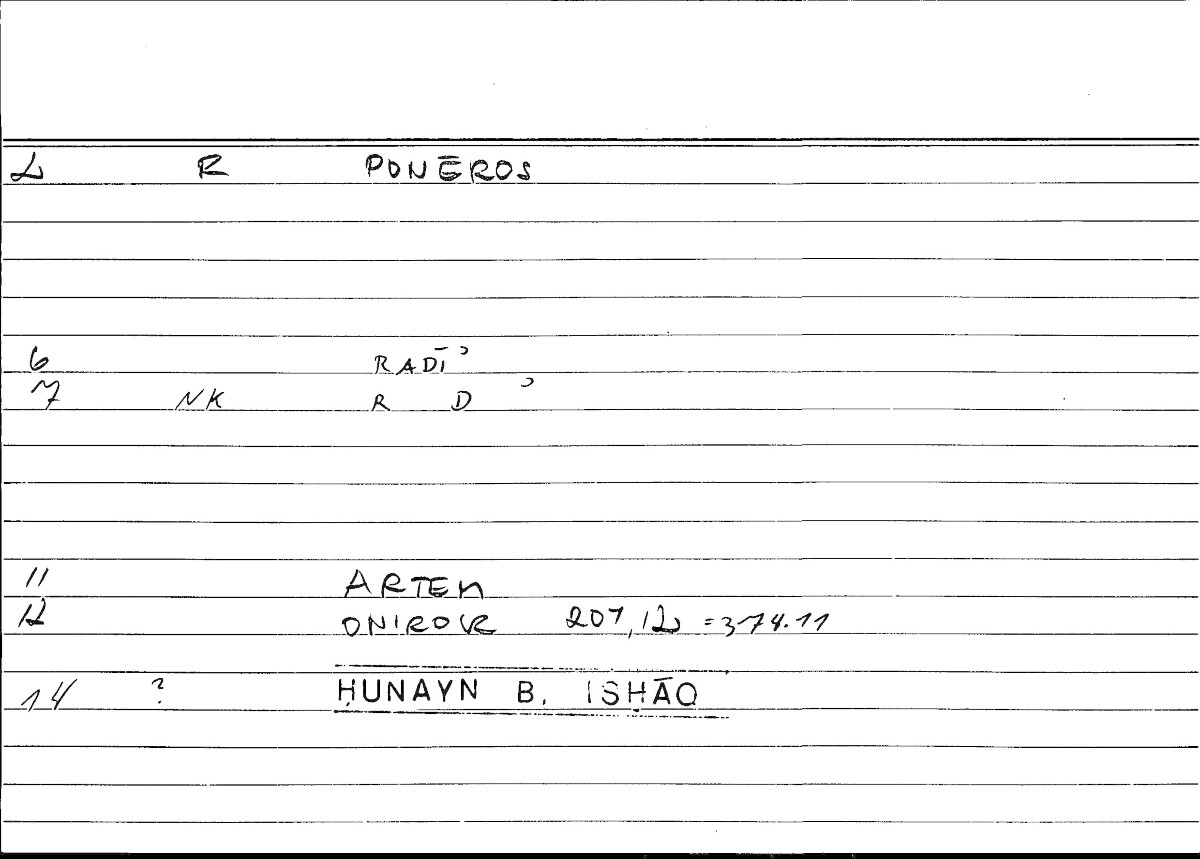 2 R PONĒROS
6 RADĪʾ
7 NK R D ʾ
11 ARTEM
12 ONIROCR 207,12 =374.11
14 ? ḤUNAYN B. ISḤĀQ